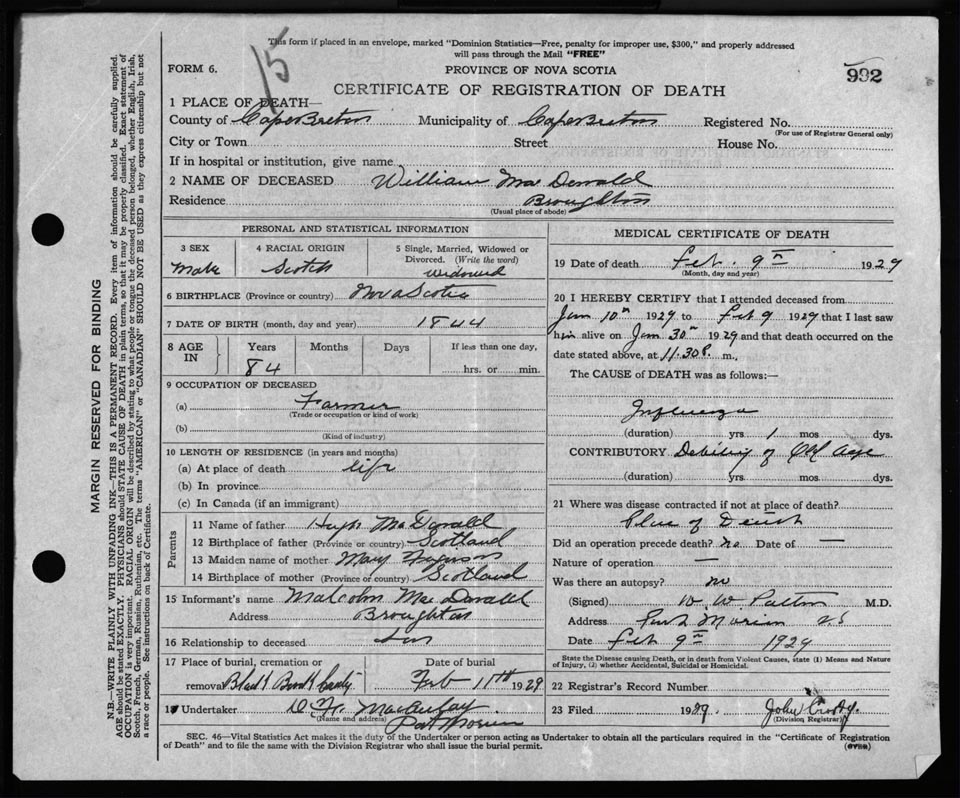 This form if placed in an envelope, marked "Dominion Statistics—Free, penalty for improper use, $300," and properly addressed
will pass through the Mail "FREE"
15
FORM 6.
PROVINCE OF NOVA SCOTIA
992
CERTIFICATE OF REGISTRATION OF DEATH
1 PLACE OF DEATH—
County of Cape Breton Municipality of Cape Breton Registered No.
(For use of Registrar General only)
City or Town Street House No.
If in hospital or institution, give name
2 NAME OF DECEASED William MacDonald
Residence Broughton
(Usual place of abode)
PERSONAL AND STATISTICAL INFORMATION
3 SEX 4 RACIAL ORIGIN 5 Single, Married, Widowed or
Divorced. (Write the word)
Male Scotch widowed
6 BIRTHPLACE (Province or country) Nova Scotia
7 DATE OF BIRTH (month, day and year) 1844
8 AGE IN Years Months Days If less than one day,
84 hrs. or min.
9 OCCUPATION OF DECEASED
(a) Farmer
(Trade or occupation or kind of work)
(b)
(Kind of industry)
10 LENGTH OF RESIDENCE (in years and months)
(a) At place of death life
(b) In province
(c) In Canada (if an immigrant)
Parents
11 Name of father Hugh MacDonald
12 Birthplace of father (Province or country) Scotland
13 Maiden name of mother Mary Ferguson
14 Birthplace of mother (Province or country) Scotland
15 Informant's name Malcolm MacDonald
Address Broughton
16 Relationship to deceased Son
17 Place of burial, cremation or Date of burial
removal Black Brook Feb 11th 1929
18 Undertaker MacAulay
(Name and address) Port Morien
MEDICAL CERTIFICATE OF DEATH
19 Date of death Feb. 9th 1929
(Month, day and year)
20 I HEREBY CERTIFY that I attended deceased from
Jan 10th 1929 to Feb 9 1929 that I last saw
him alive on Jan 30th 1929 and that death occurred on the
date stated above, at 11.30 P. m.,
The CAUSE of DEATH was as follows:—
Influenza
(duration) yrs 1 mos dys.
CONTRIBUTORY Debility of Old Age
(duration) yrs. mos. dys.
21 Where was disease contracted if not at place of death?
Place of Death
Did an operation precede death? no Date of —
Nature of operation —
Was there an autopsy? no
(Signed) W. W. Patton M.D.
Address Port Morien N.S
Date Feb 9th 1929
State the Disease causing Death, or in death from Violent Causes, state (1) Means and Nature
of Injury, (2) whether Accidental, Suicidal or Homicidal.
22 Registrar's Record Number
23 Filed 1929. John
(Division Registrar)
SEC. 46—Vital Statistics Act makes it the duty of the Undertaker or person acting as Undertaker to obtain all the particulars required in the "Certificate of Registration
of Death" and to file the same with the Division Registrar who shall issue the burial permit.
(OVER)
MARGIN RESERVED FOR BINDING
N.B.—WRITE PLAINLY WITH UNFADING INK—THIS IS A PERMANENT RECORD. Every item of information should be carefully supplied.
AGE should be stated EXACTLY. PHYSICIANS should STATE CAUSE OF DEATH in plain terms, so that it may be properly classified. Exact statement of
OCCUPATION is very important. RACIAL ORIGIN will be described by stating to what people or tongue the deceased person belonged, whether English, Irish,
Scotch, French, German, Russian, Ruthenian, etc. The terms "AMERICAN" or "CANADIAN" SHOULD NOT BE USED as they express citizenship but not
a race or people. See instructions on back of Certificate.